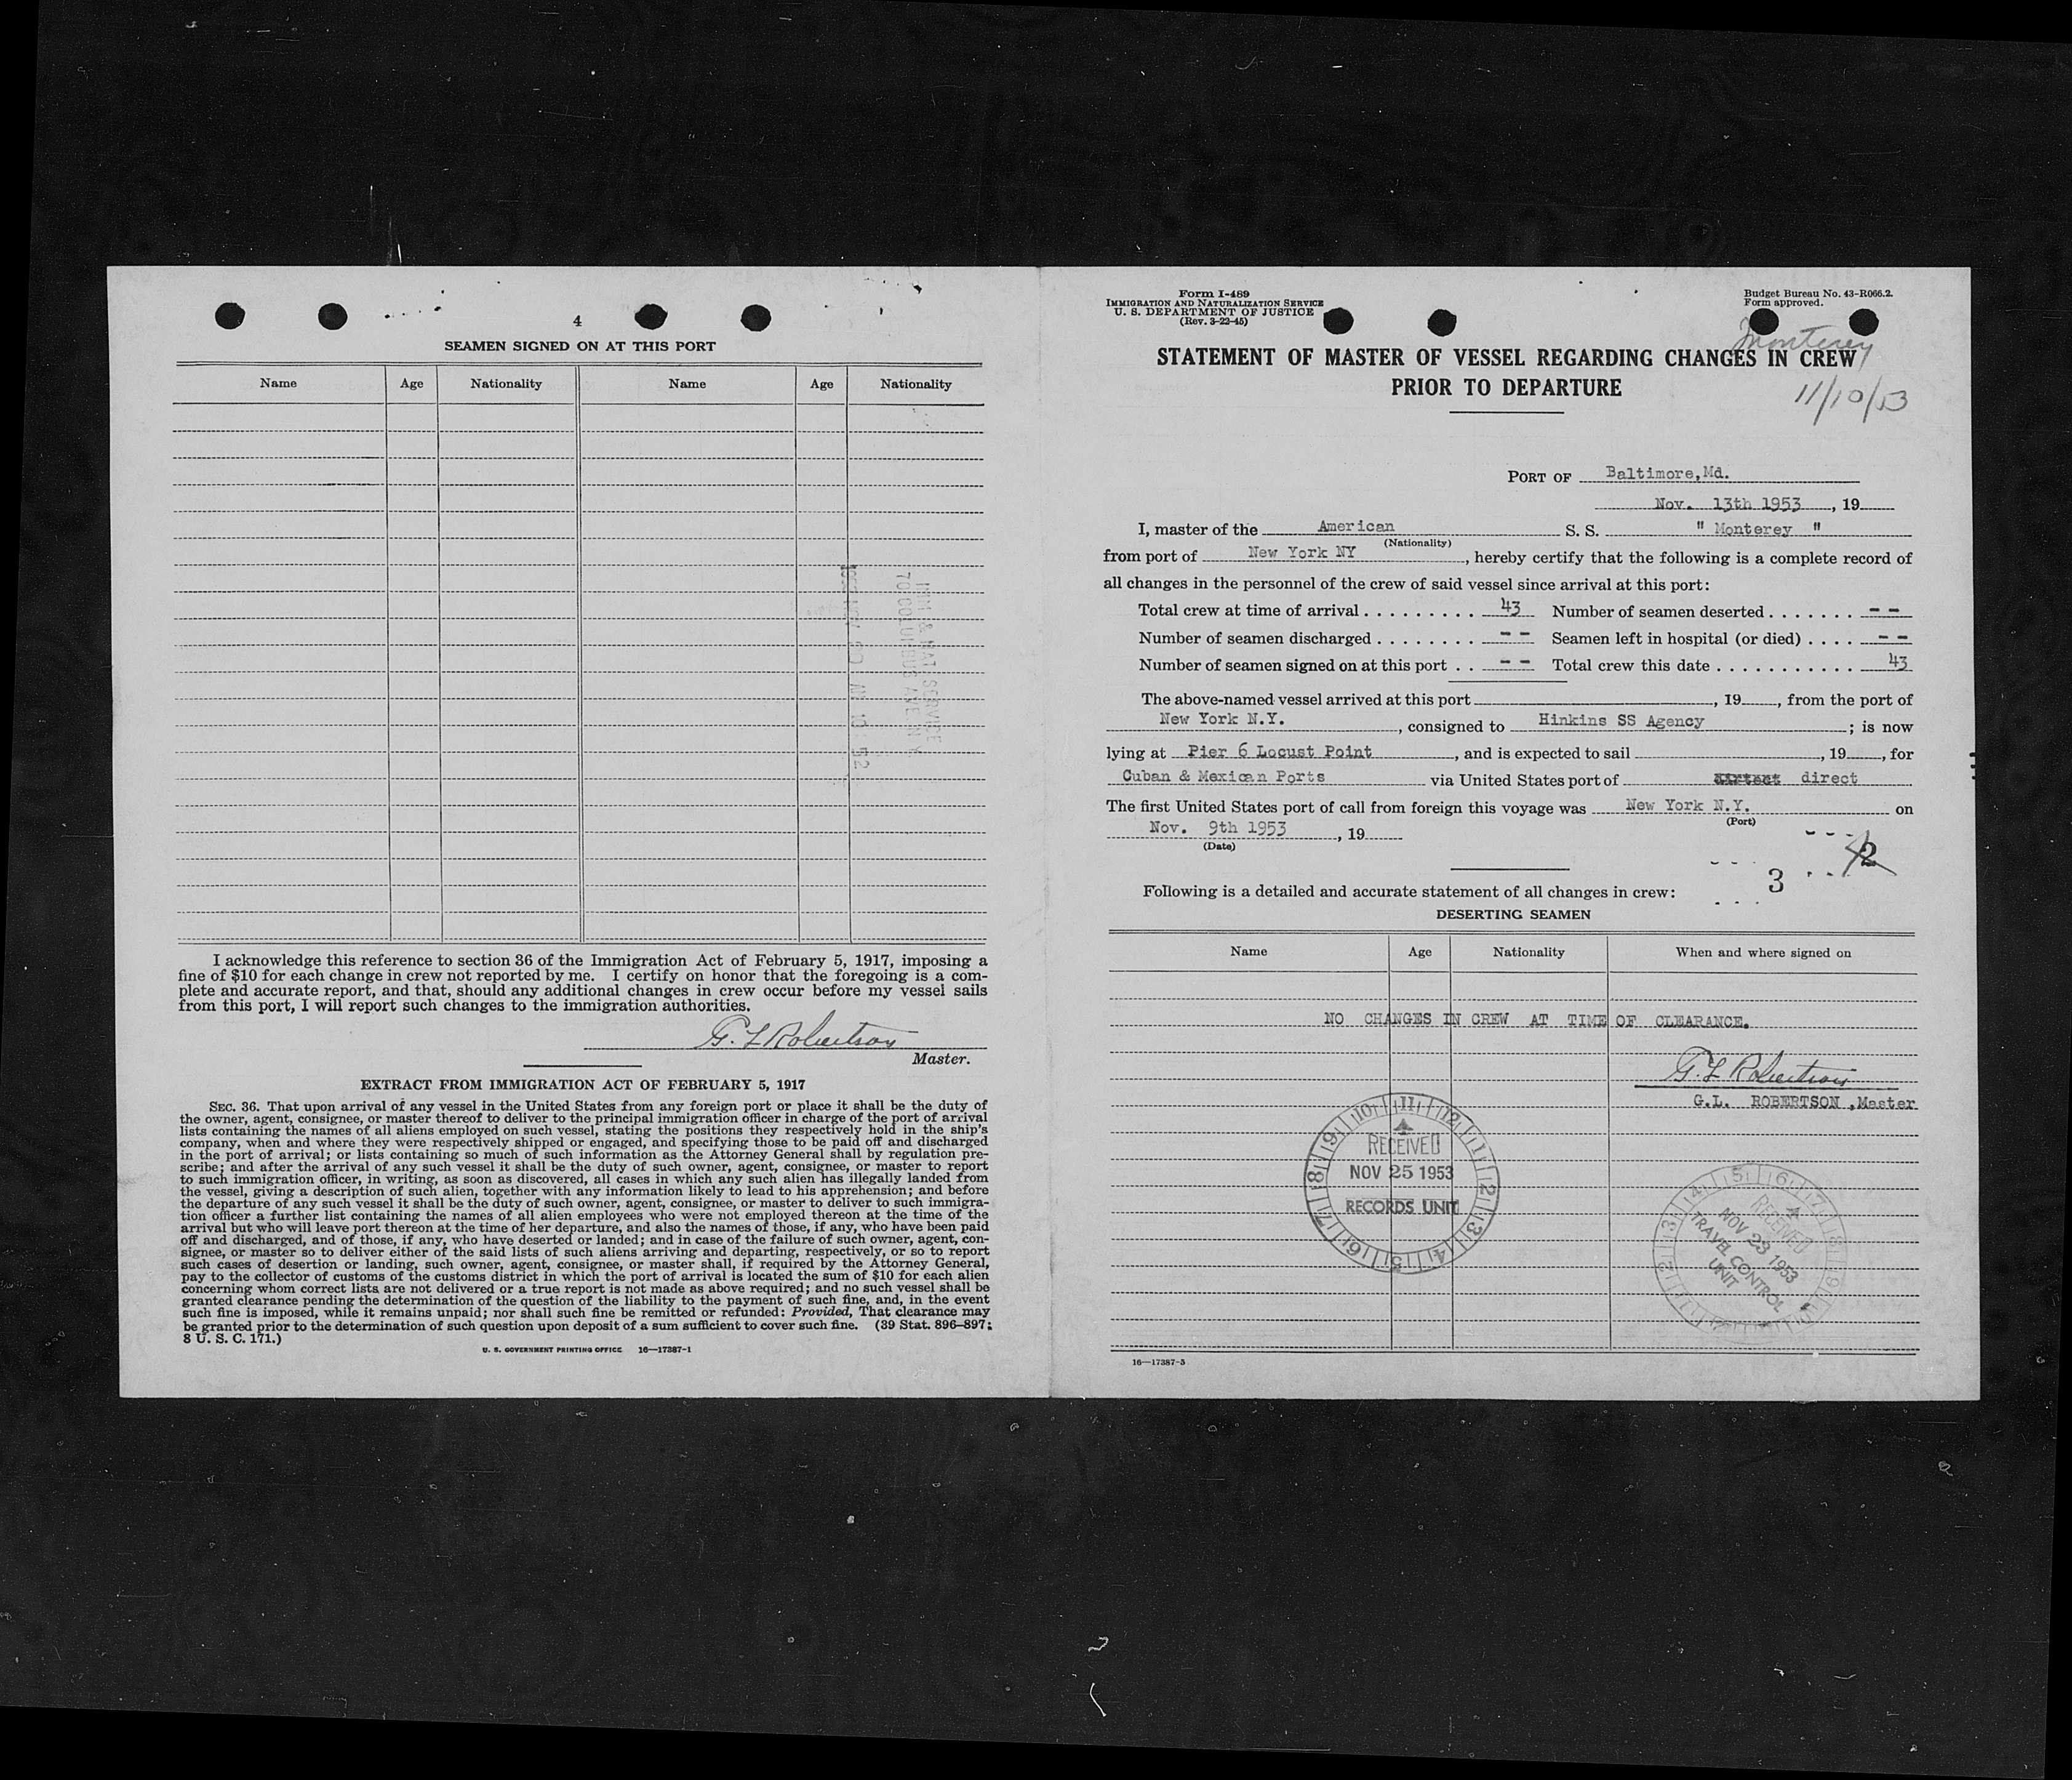 4
SEAMEN SIGNED ON AT THIS PORT
Name Age Nationality Name Age Nationality
IMM & NAT SERVICE
70 COLUMBUS AVE N Y
I acknowledge this reference to section 36 of the Immigration Act of February 5, 1917, imposing a
fine of $10 for each change in crew not reported by me. I certify on honor that the foregoing is a com-
plete and accurate report, and that, should any additional changes in crew occur before my vessel sails
from this port, I will report such changes to the immigration authorities.
G. L Robertson
Master.
EXTRACT FROM IMMIGRATION ACT OF FEBRUARY 5, 1917
SEC. 36. That upon arrival of any vessel in the United States from any foreign port or place it shall be the duty of
the owner, agent, consignee, or master thereof to deliver to the principal immigration officer in charge of the port of arrival
lists containing the names of all aliens employed on such vessel, stating the positions they respectively hold in the ship's
company, when and where they were respectively shipped or engaged, and specifying those to be paid off and discharged
in the port of arrival; or lists containing so much of such information as the Attorney General shall by regulation pre-
scribe; and after the arrival of any such vessel it shall be the duty of such owner, agent, consignee, or master to report
to such immigration officer, in writing, as soon as discovered, all cases in which any such alien has illegally landed from
the vessel, giving a description of such alien, together with any information likely to lead to his apprehension; and before
the departure of any such vessel it shall be the duty of such owner, agent, consignee, or master to deliver to such immigra-
tion officer a further list containing the names of all alien employees who were not employed thereon at the time of the
arrival but who will leave port thereon at the time of her departure, and also the names of those, if any, who have been paid
off and discharged, and of those, if any, who have deserted or landed; and in case of the failure of such owner, agent, con-
signee, or master so to deliver either of the said lists of such aliens arriving and departing, respectively, or so to report
such cases of desertion or landing, such owner, agent, consignee, or master shall, if required by the Attorney General,
pay to the collector of customs of the customs district in which the port of arrival is located the sum of $10 for each alien
concerning whom correct lists are not delivered or a true report is not made as above required; and no such vessel shall be
granted clearance pending the determination of the question of the liability to the payment of such fine, and, in the event
such fine is imposed, while it remains unpaid; nor shall such fine be remitted or refunded: Provided, That clearance may
be granted prior to the determination of such question upon deposit of a sum sufficient to cover such fine. (39 Stat. 896-897;
8 U. S. C. 171.)
U. S. GOVERNMENT PRINTING OFFICE 16—17387-1
Form I-489
IMMIGRATION AND NATURALIZATION SERVICE
U. S. DEPARTMENT OF JUSTICE
(Rev. 3-22-45)
Budget Bureau No. 43-R066.2.
Form approved.
Monterey
STATEMENT OF MASTER OF VESSEL REGARDING CHANGES IN CREW
PRIOR TO DEPARTURE
11/10/53
PORT OF Baltimore,Md.
Nov. 13th 1953, 19
I, master of the American S. S. " Monterey "
(Nationality)
from port of New York NY, hereby certify that the following is a complete record of
all changes in the personnel of the crew of said vessel since arrival at this port:
Total crew at time of arrival 43 Number of seamen deserted - -
Number of seamen discharged - - Seamen left in hospital (or died) - -
Number of seamen signed on at this port - - Total crew this date 43
The above-named vessel arrived at this port , 19 , from the port of
New York N.Y. , consigned to Hinkins SS Agency ; is now
lying at Pier 6 Locust Point , and is expected to sail , 19 , for
Cuban & Mexican Ports via United States port of direct
The first United States port of call from foreign this voyage was New York N.Y. on
(Port)
Nov. 9th 1953 , 19
(Date)
2
3
Following is a detailed and accurate statement of all changes in crew:
DESERTING SEAMEN
Name Age Nationality When and where signed on
NO CHANGES IN CREW AT TIME OF CLEARANCE.
G. L Robertson
G.L. ROBERTSON ,Master
10 11 12 1 2 3 4 5 6 7 8 9
RECEIVED
NOV 25 1953
RECORDS UNIT
RECEIVED
NOV 23 1953
TRAVEL CONTROL
UNIT
16—17387-3